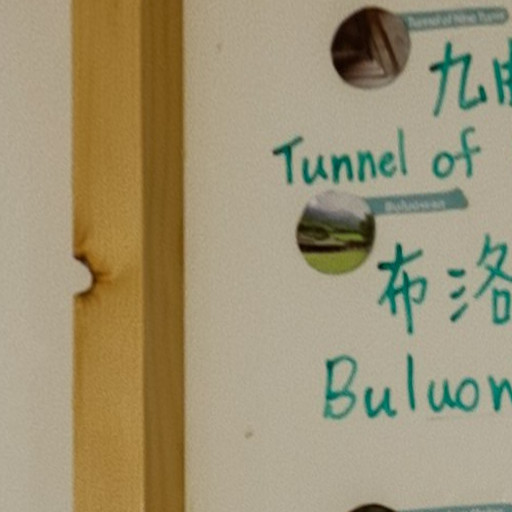 Tunnel of Nine Turns
九
Tunnel of
Buluowan
布洛
Buluow